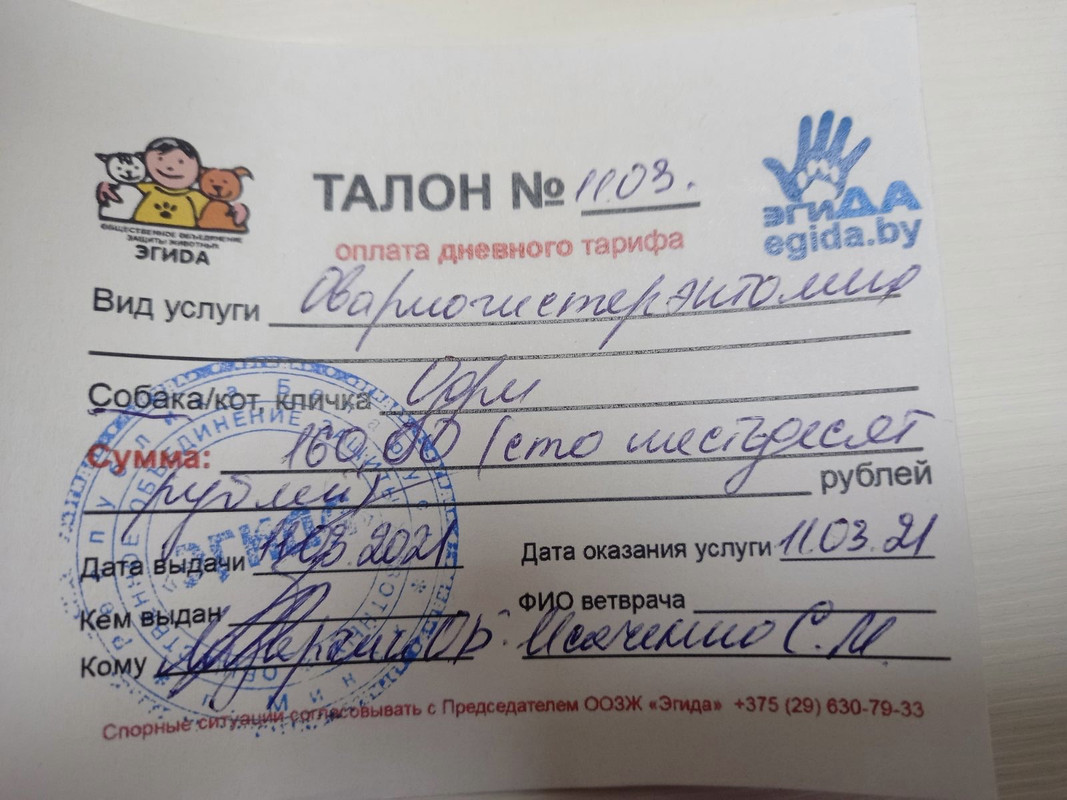 ОБЩЕСТВЕННОЕ ОБЪЕДИНЕНИЕ
ЗАЩИТЫ ЖИВОТНЫХ
ЭГИДА
ТАЛОН № 11.03.
эгиДА
egida.by
оплата дневного тарифа
Вид услуги Овариогистерэктомия
Собака/кот, кличка
Сумма: 160,00 (сто шестьдесят
рублей) рублей
Дата выдачи 11.03.2021 Дата оказания услуги 11.03.21
Кем выдан ФИО ветврача
Кому Исаченко С.М
Спорные ситуации согласовывать с Председателем ООЗЖ «Эгида» +375 (29) 630-79-33
Республика Беларусь
ОБЪЕДИНЕНИЕ
"ЭГИДА"